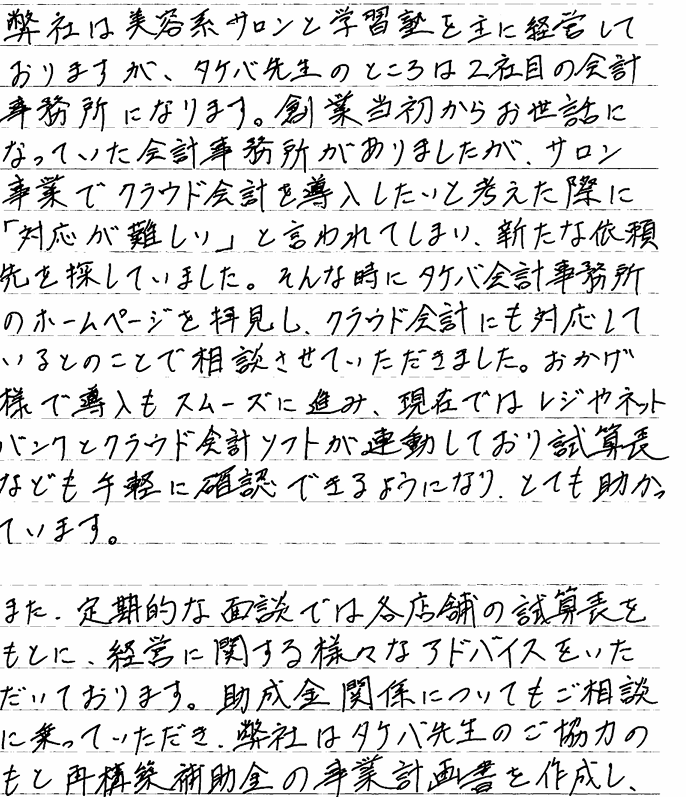 弊社は美容系サロンと学習塾を主に経営して
おりますが、タケバ先生のところは2社目の会計
事務所になります。創業当初からお世話に
なっていた会計事務所がありましたが、サロン
事業でクラウド会計を導入したいと考えた際に
「対応が難しい」と言われてしまい、新たな依頼
先を探していました。そんな時にタケバ会計事務所
のホームページを拝見し、クラウド会計にも対応して
いるとのことで相談させていただきました。おかげ
様で導入もスムーズに進み、現在ではレジやネット
バンクとクラウド会計ソフトが連動しており試算表
なども手軽に確認できるようになり、とても助かっ
ています。
また、定期的な面談では各店舗の試算表を
もとに、経営に関する様々なアドバイスをいた
だいております。助成金関係についてもご相談
に乗っていただき、弊社はタケバ先生のご協力の
もと再構築補助金の事業計画書を作成し、